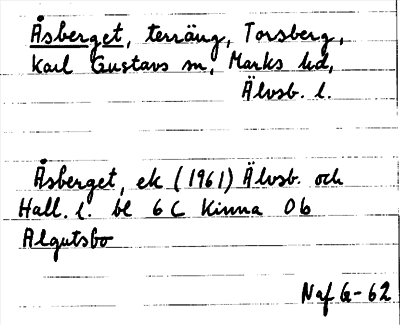 Åsberget, terräng, Torsberg,
Karl Gustavs sn, Marks hd,
Älvsb. l.
Åsberget, ek (1961) Älvsb. och
Hall. l. bl 6 C Kinna 0b
Algutsbo
Naf G-62